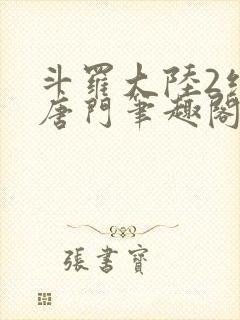 斗羅大陸2
唐門筆趣閣
張書寶